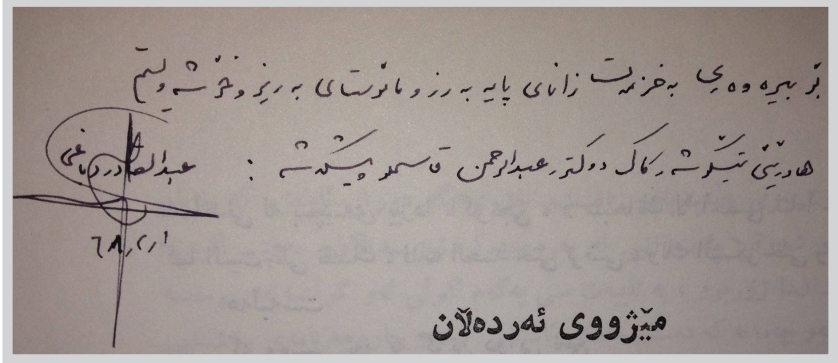 بۆ بیرەوەری بەخزمەت زانای پایە بەرز و مامۆستای بەڕێز و خۆشەویستم
هاوڕێی تێکۆشەر کاک دوکتۆر عبدالرحمن قاسملو پێشکەشە : عبدالقادر دباغی
٦٨/٢/١
مێژووی ئەردەڵان